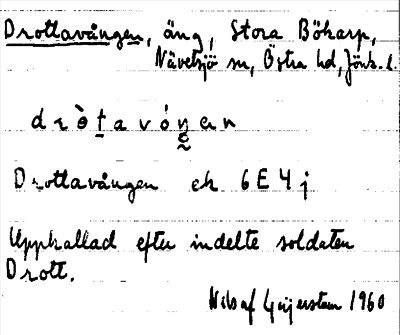 Drottavången, äng, Stora Bökarp,
Nävelsjö sn, Östra hd, Jönk. l.
dròt̠avóŋ̰an
Drottavången ek 6E4j
Uppkallad efter indelte soldaten
Drott.
Nils af Gyjerstam 1960